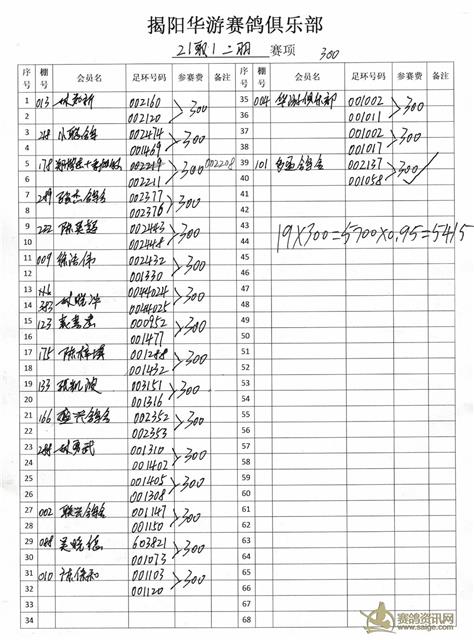 揭阳华游赛鸽俱乐部
21 1 赛项 300
序号 棚号 会员名 足环号码 参赛费 备注 序号 棚号 会员名 足环号码 参赛费 备注
1 013 002160 300 35 004 华游俱乐部 001002 300
2 002120 36 001011
3 002474 300 37 001002 300
4 001469 38 001017
5 178 002219 300 002228 39 101 002137 300
6 002211 40 001058
7 289 002377 300 41
8 002376 42
9 222 002443 300 43 19×300=5700×0.95=5415
10 002448 44
11 009 徐洁伟 002432 300 45
12 001330 46
13 0044024 300 47
14 383 0044025 48
15 123 000952 300 49
16 001477 50
17 175 001288 300 51
18 001432 52
19 133 003151 300 53
20 001316 54
21 166 002352 300 55
22 002353 56
23 288 001310 300 57
24 001402 58
25 001405 300 59
26 001308 60
27 002 001147 300 61
28 001150 62
29 088 603821 300 63
30 001073 64
31 010 001103 300 65
32 001120 66
33 67
34 68
赛鸽资讯网
www.saige.com